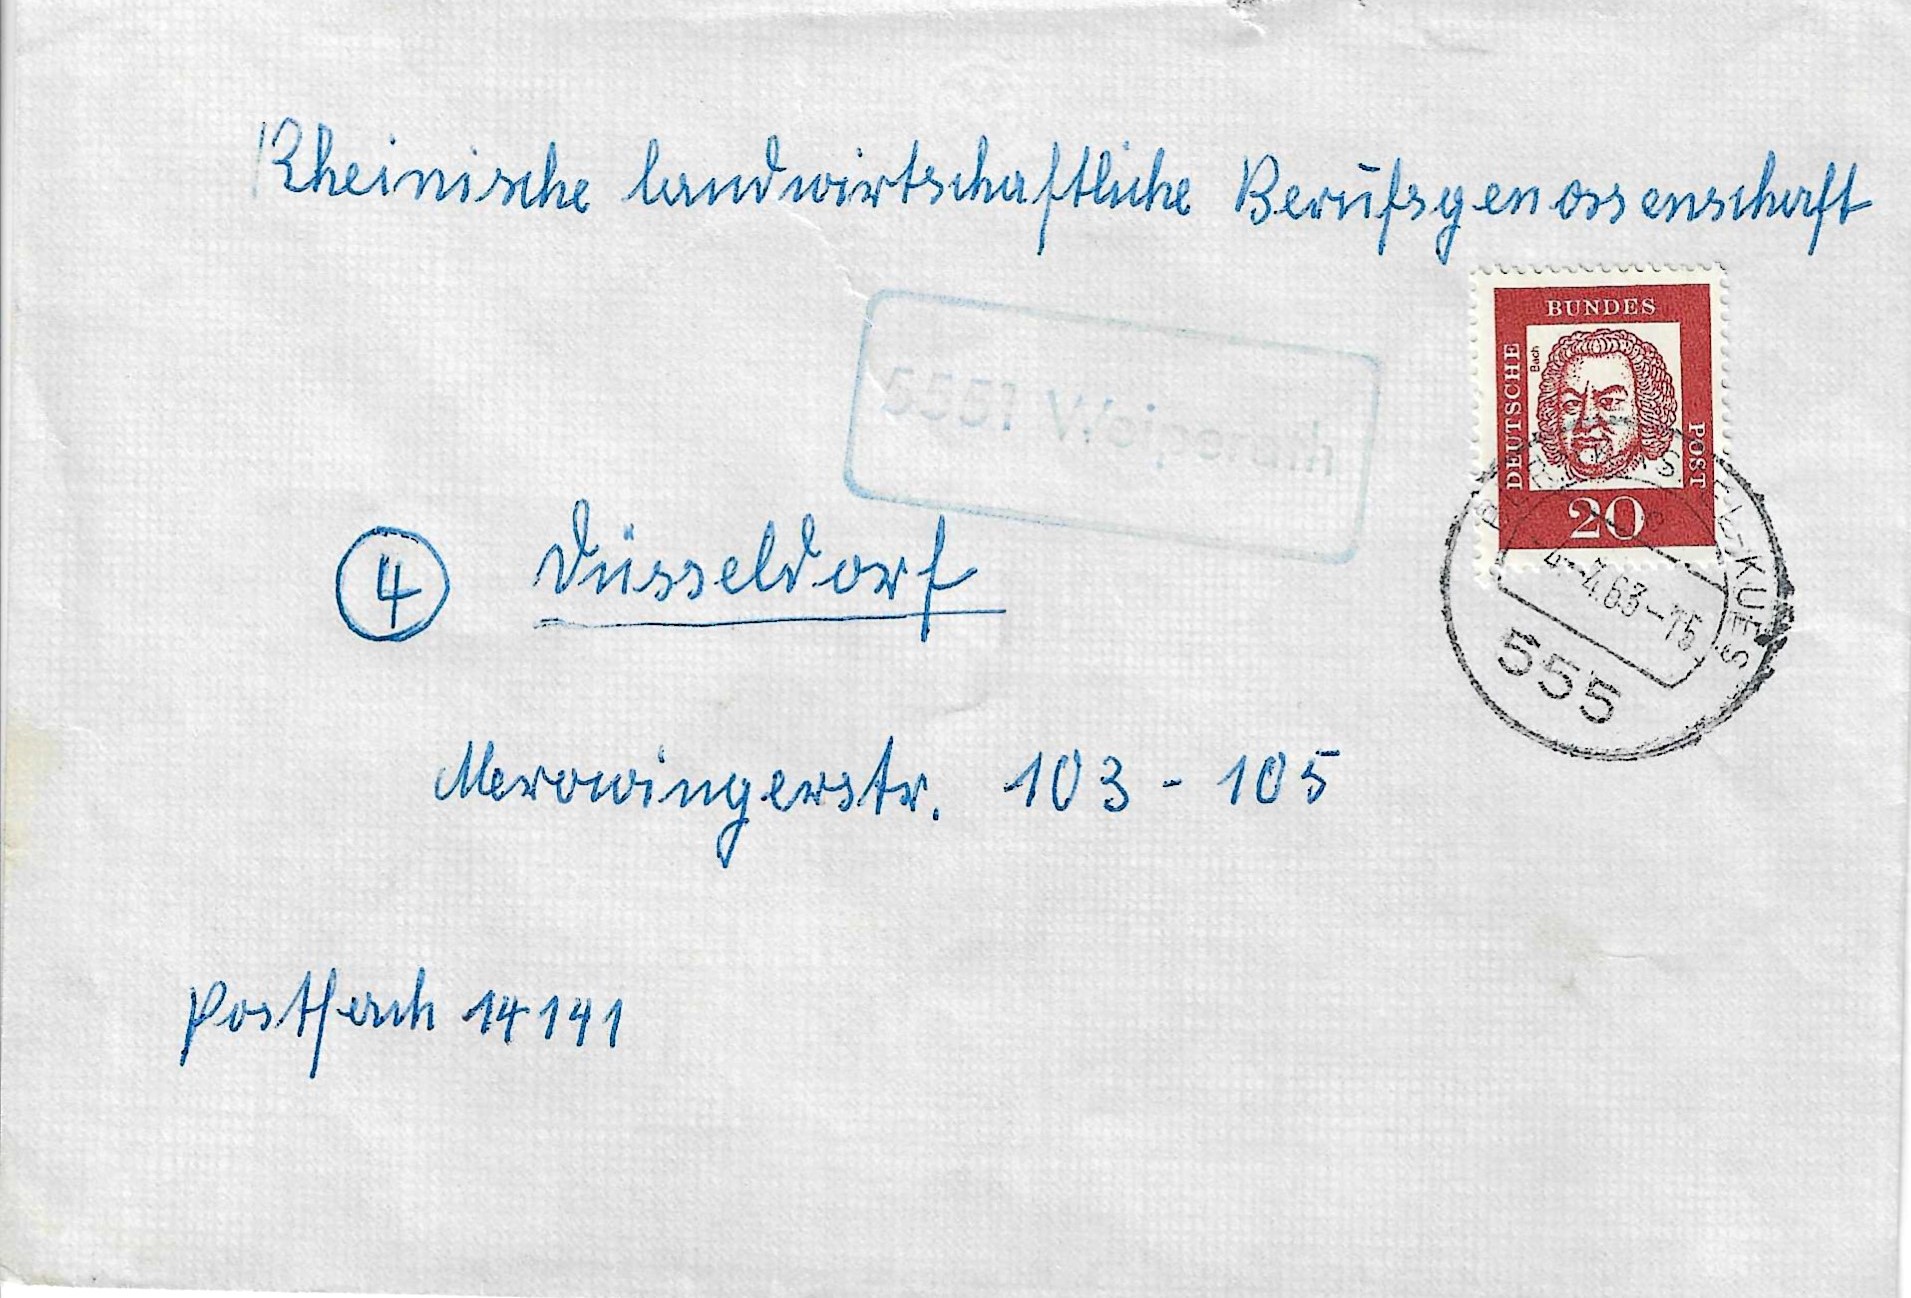 Rheinische landwirtschaftliche Berufsgenossenschaft
BUNDES
DEUTSCHE
Bach
POST
20
5551 Weiperath
4 Düsseldorf
-KUES
4.-4.63-15
555
Merowingerstr. 103-105
Postfach 14141